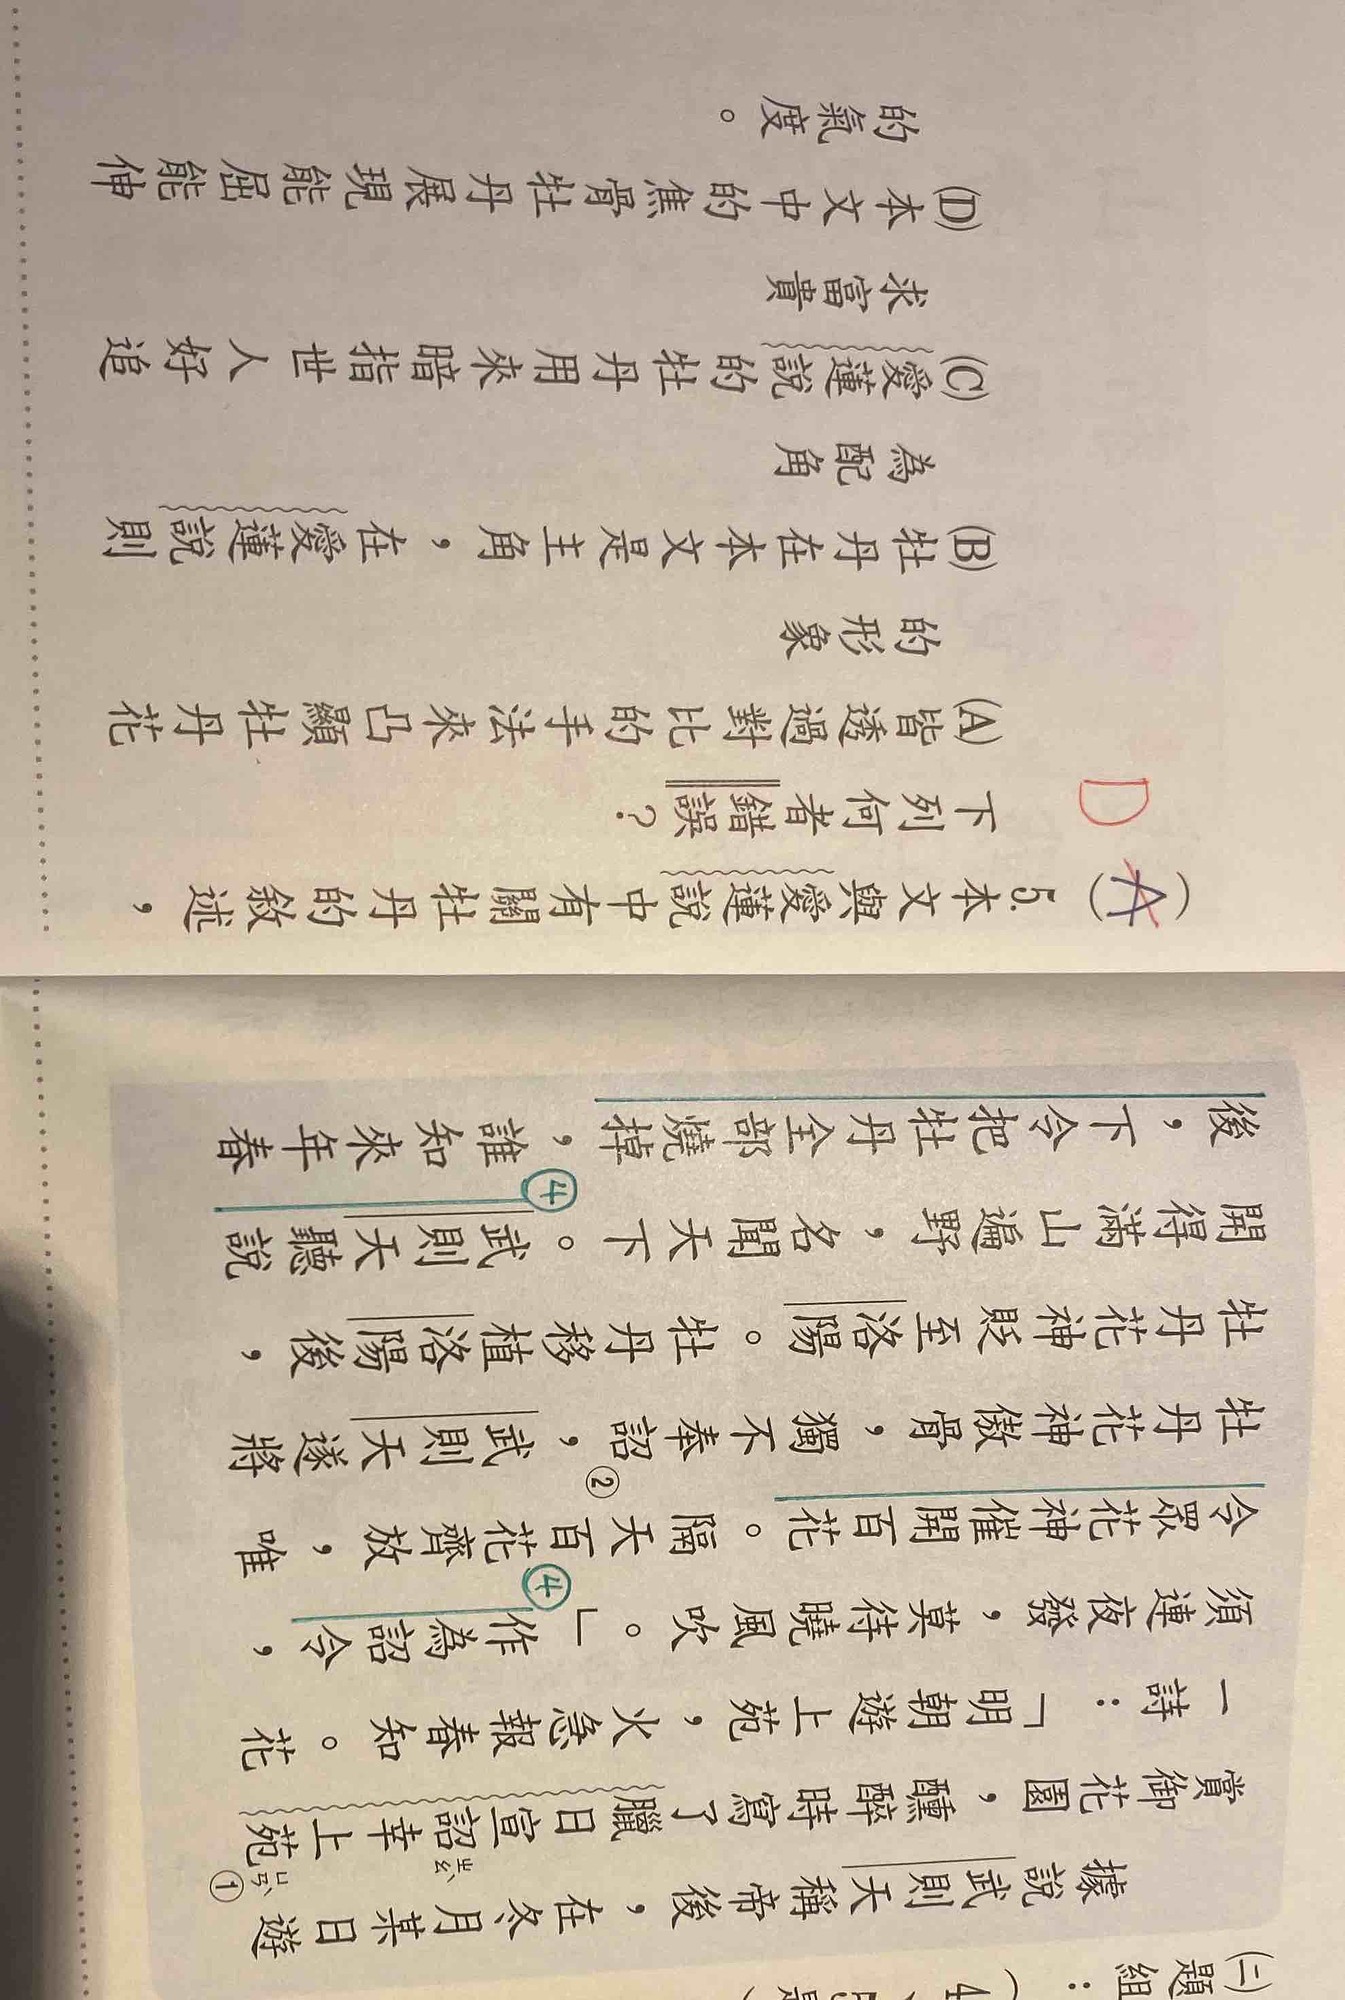 (二)題組：(4
據說武則天稱帝後，在冬月某日遊
賞御花園，醺醉時寫了臘日宣詔ㄓㄠˋ幸上苑ㄩㄢˋ①
一詩：「明朝遊上苑，火急報春知。花
須連夜發，莫待曉風吹。」④作為詔令，
令眾花神催開百花。隔天百花齊放，唯
牡丹花神傲骨，獨不奉詔②，武則天遂將
牡丹花神貶至洛陽。牡丹移植洛陽後，
開得滿山遍野，名聞天下。④武則天聽說
後，下令把牡丹全部燒掉，誰知來年春
(A)5.本文與愛蓮說中有關牡丹的敘述，
D
下列何者錯誤？
(A)皆透過對比的手法來凸顯牡丹花
的形象
(B)牡丹在本文是主角，在愛蓮說則
為配角
(C)愛蓮說的牡丹用來暗指世人好追
求富貴
(D)本文中的焦骨牡丹展現能屈能伸
的氣度。